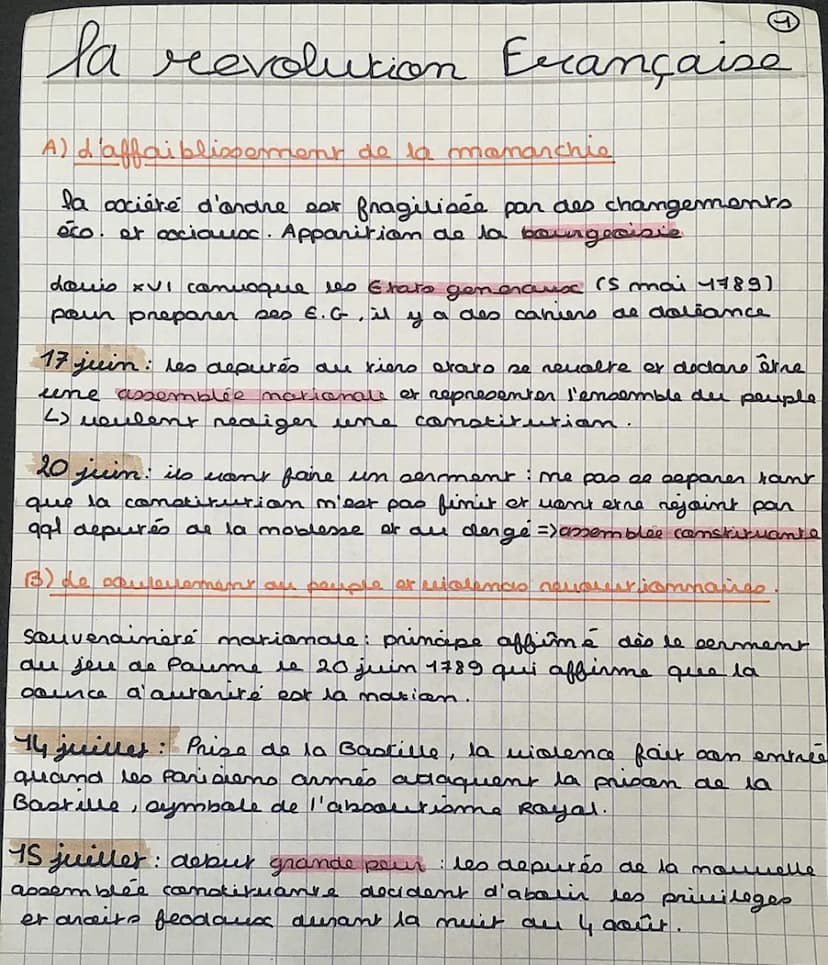 1
la revolution Française
A) L'affaiblissement de la monarchie
la société d'ordre est fragilisée par des changements
éco. et sociaux. Apparition de la bourgeoisie
Louis XVI convoque les Etats généraux (5 mai 1789)
pour preparer ses E.G, il y a des cahiers de doliance
17 juin : les deputés du tiers etats se revolte et declare être
une assemblée nationale et representer l'ensemble du peuple
↳ veulent rediger une constitution.
20 juin : ils vont faire un serment : ne pas se separer tant
que la constitution n'est pas finit et vont etre rejoint par
qql deputés de la noblesse et du clergé => assemblée constituante
B) Le soulevement du peuple et violences revolutionnaires.
Souveraineté nationale : principe affirmé dès le serment
du jeu de Paume le 20 juin 1789 qui affirme que la
source d'autorité est la nation.
14 juillet : Prise de la Bastille, la violence fait son entrée
quand les Parisiens armés attaquent la prison de la
Bastille, symbole de l'absolutisme Royal.
15 juillet : debut grande peur : les deputés de la nouvelle
assemblée constituante decident d'abolir les privileges
et droits feodaux durant la nuit du 4 août.